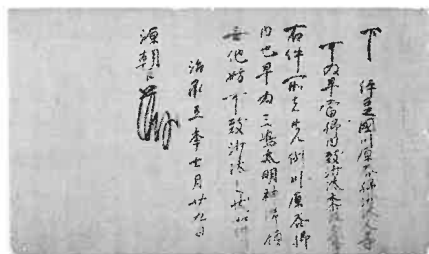 下 伊豆国川原谷郷沙汰人等
可令早当郷内致沙汰事
右件所者先例川原谷郷
内也早為三嶋大明神御領
無他妨可致沙汰之状如件
治承五年七月廿九日
源朝臣